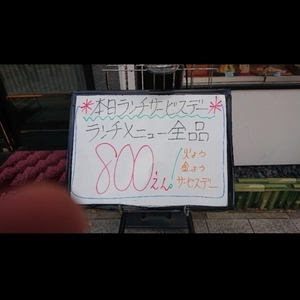 *本日ランチサービスデー*
ランチメニュー全品
800えん!
火よう
金よう
サービスデー